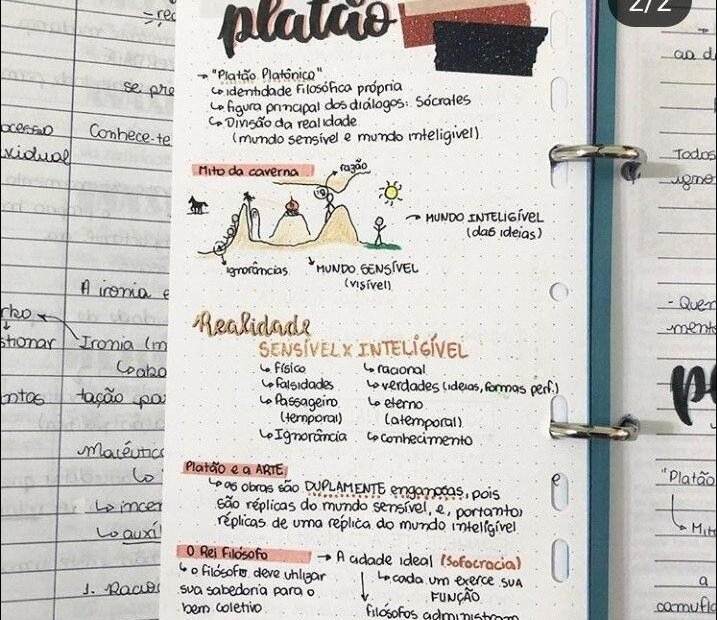 2/2
platão
→ "Platão Platônico"
↳ identidade filosófica própria
↳ figura principal dos diálogos: Sócrates
↳ Divisão da realidade
(mundo sensível e mundo inteligível)
Mito da caverna
razão
→ MUNDO INTELIGÍVEL
(das ideias)
ignorâncias
MUNDO SENSÍVEL
(visível)
Realidade
SENSÍVEL X INTELIGÍVEL
↳ físico
↳ falsidades
↳ Passageiro
(temporal)
↳ Ignorância
↳ racional
↳ verdades (ideias, formas perf.)
↳ eterno
(atemporal)
↳ conhecimento
Platão e a ARTE
↳ as obras são DUPLAMENTE enganosas, pois
são réplicas do mundo sensível, e, portanto,
réplicas de uma réplica do mundo inteligível
O Rei Filósofo
↳ o filósofo deve utilizar
sua sabedoria para o
bem coletivo
→ A cidade ideal (Sofocracia)
↳ cada um exerce sua
FUNÇÃO
filósofos administram
se pre
Conhece-te
vidual
A ironia e
Ironia (m
stionar
ntos
tação pa
Maiêutica
↳ incer
↳ auxíl
1. Racio
ao d
Todos
- Quer
ment
p
"Platão
↳ Mit
a
camufla